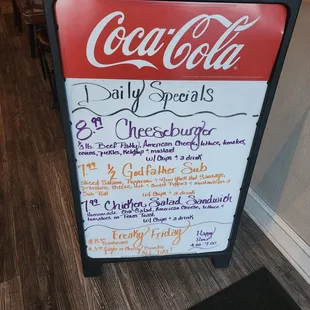 Coca-Cola
Daily Specials
8.99 Cheeseburger
1/3 lb. Beef Patty, American Cheese, lettuce, tomatoes,
onions, pickles, Ketchup + mustard
w/ Chips + a drink
7.99 1/2 Godfather Sub
Sliced Salami, Pepperoni + New York Hot Sausage,
Provolone Cheese, Hot + Sweet Peppers +
Sub Roll
w/ Chips + a drink
7.99 Chicken Salad Sandwich
Homemade Salad, American Cheese, lettuce +
tomatoes on Texas Toast
w/ Chips + a drink
Freaky Friday
Happy
Hour
ALL DAY!